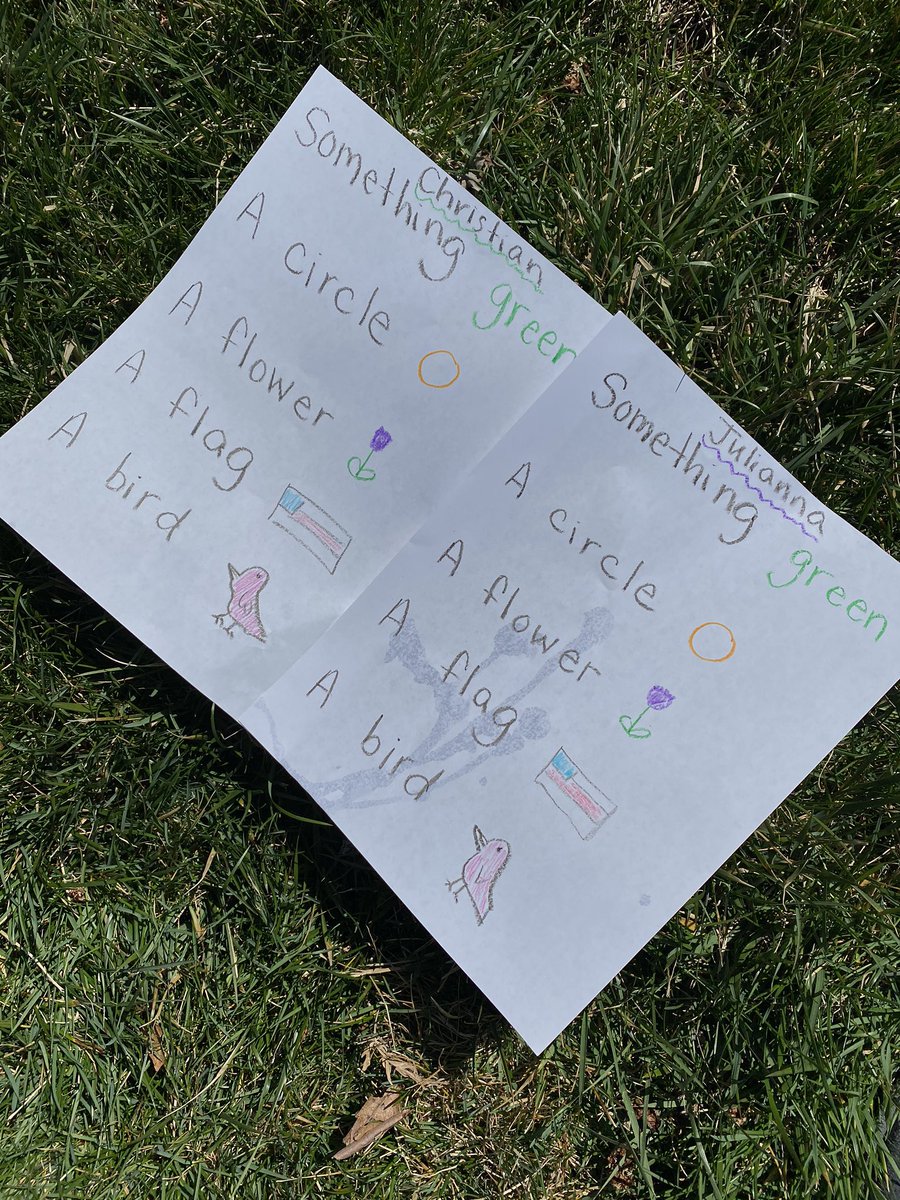 Christian
Something green
A circle
A flower
A flag
A bird
Julianna
Something green
A circle
A flower
A flag
A bird